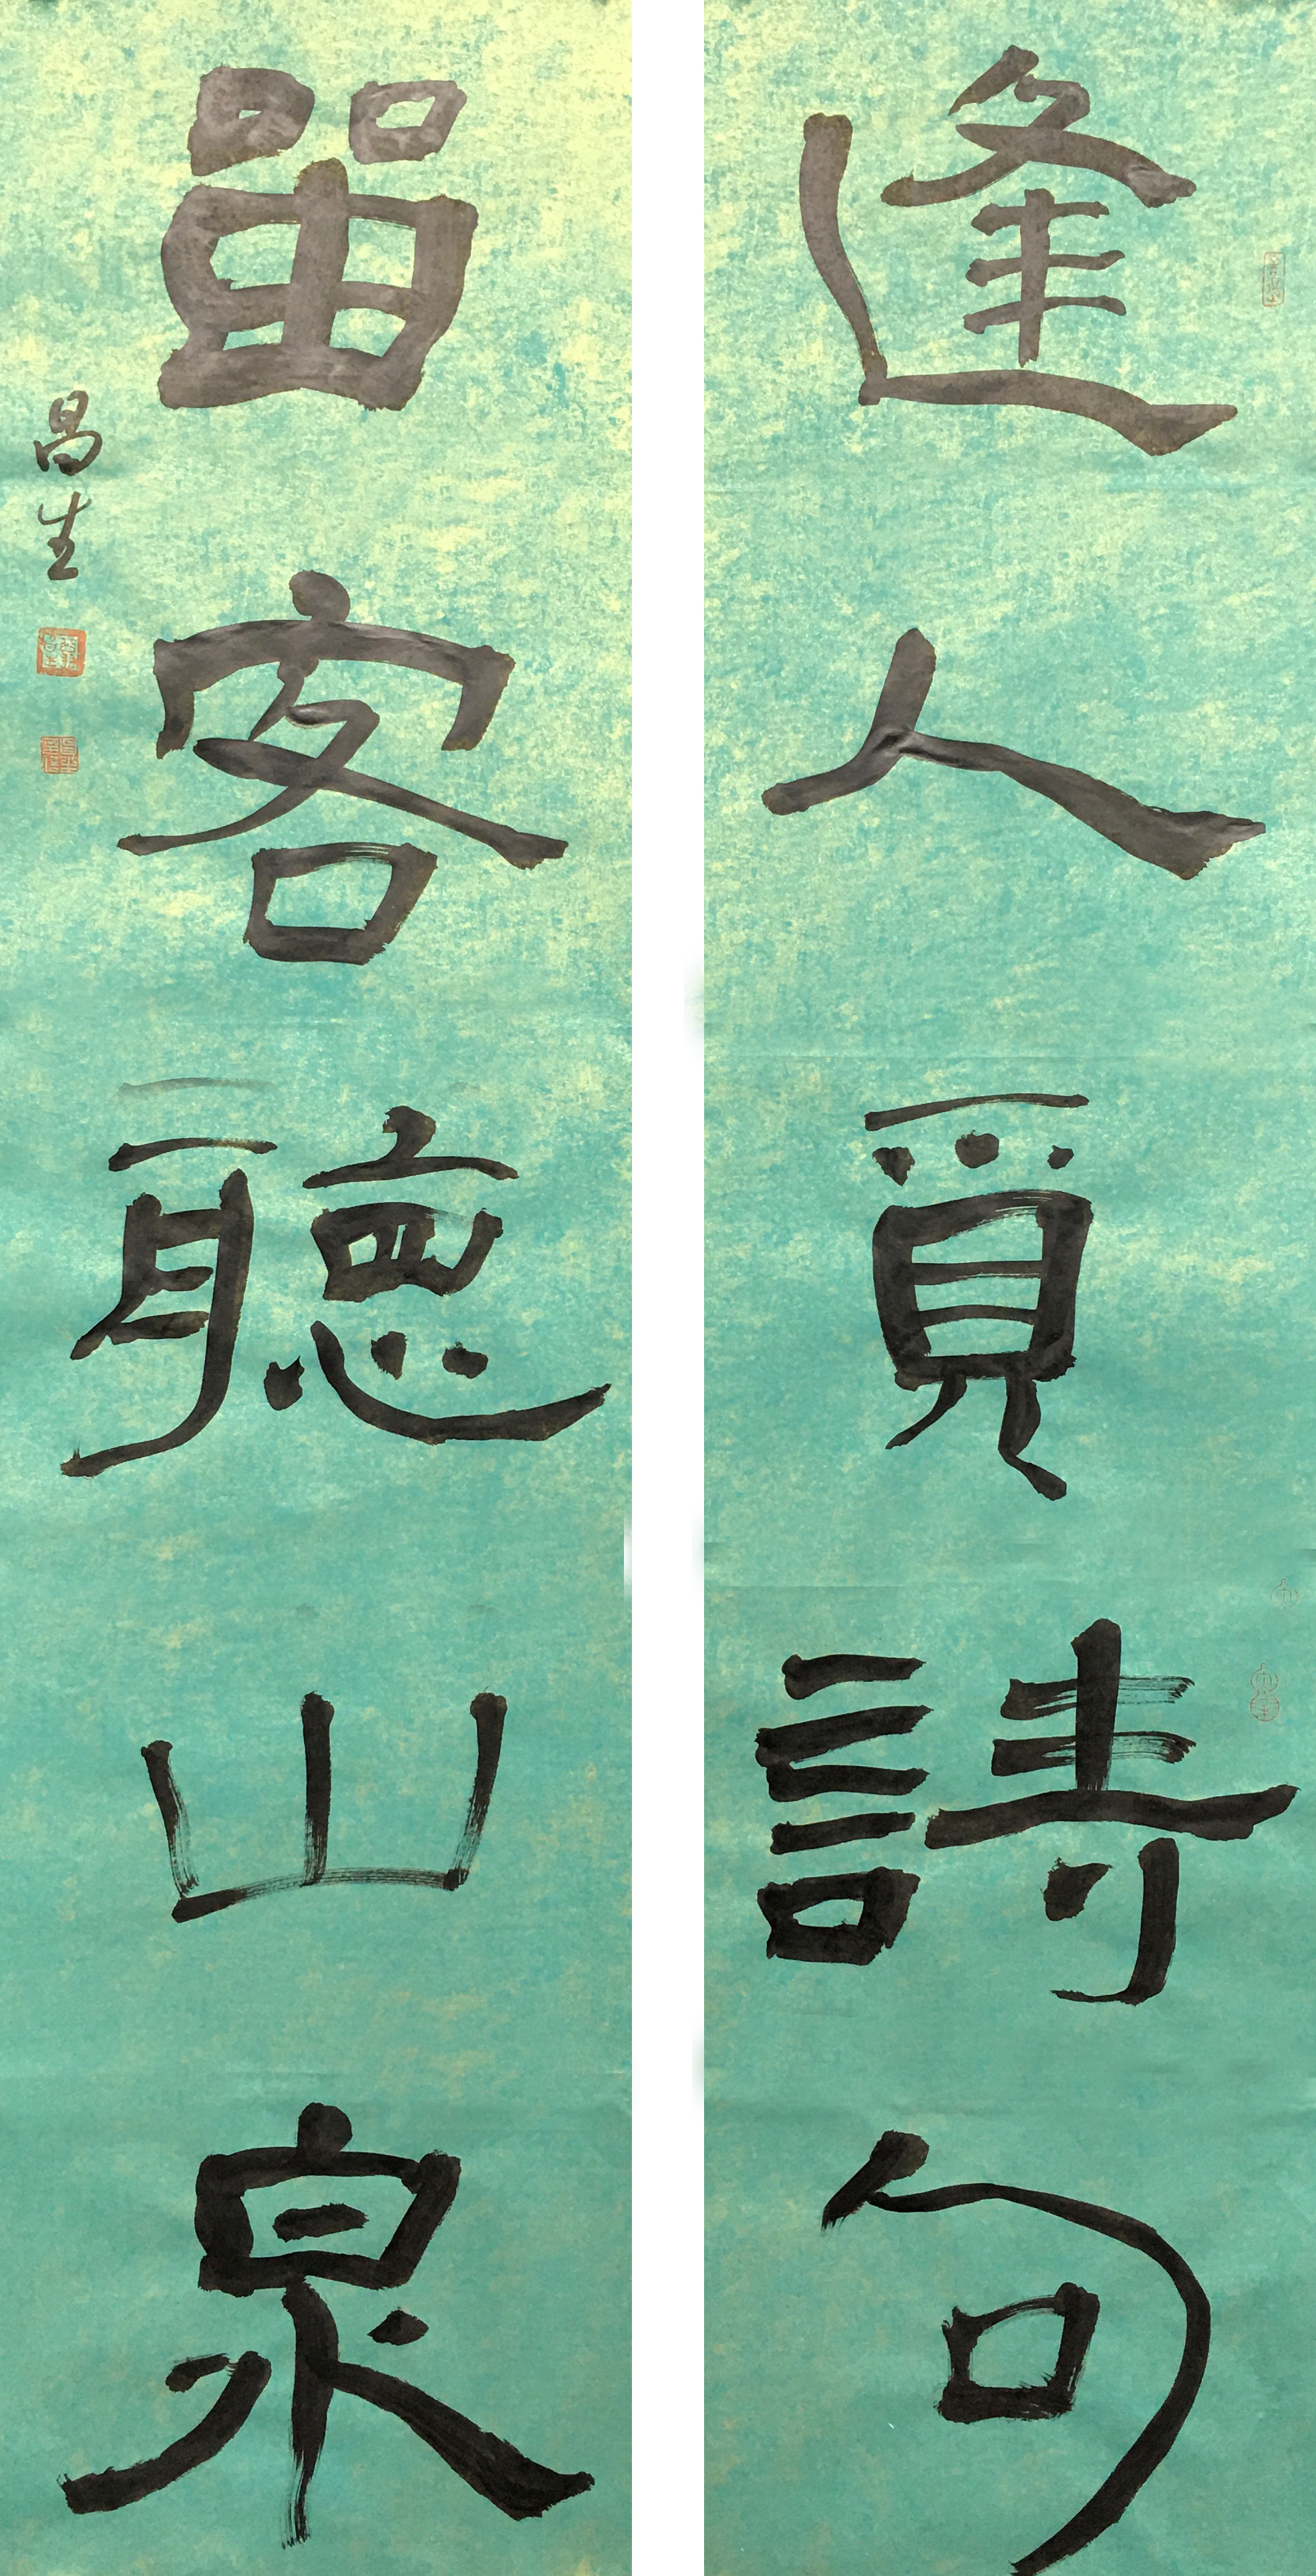 逢人覓詩句
畱客聽山泉
昌生